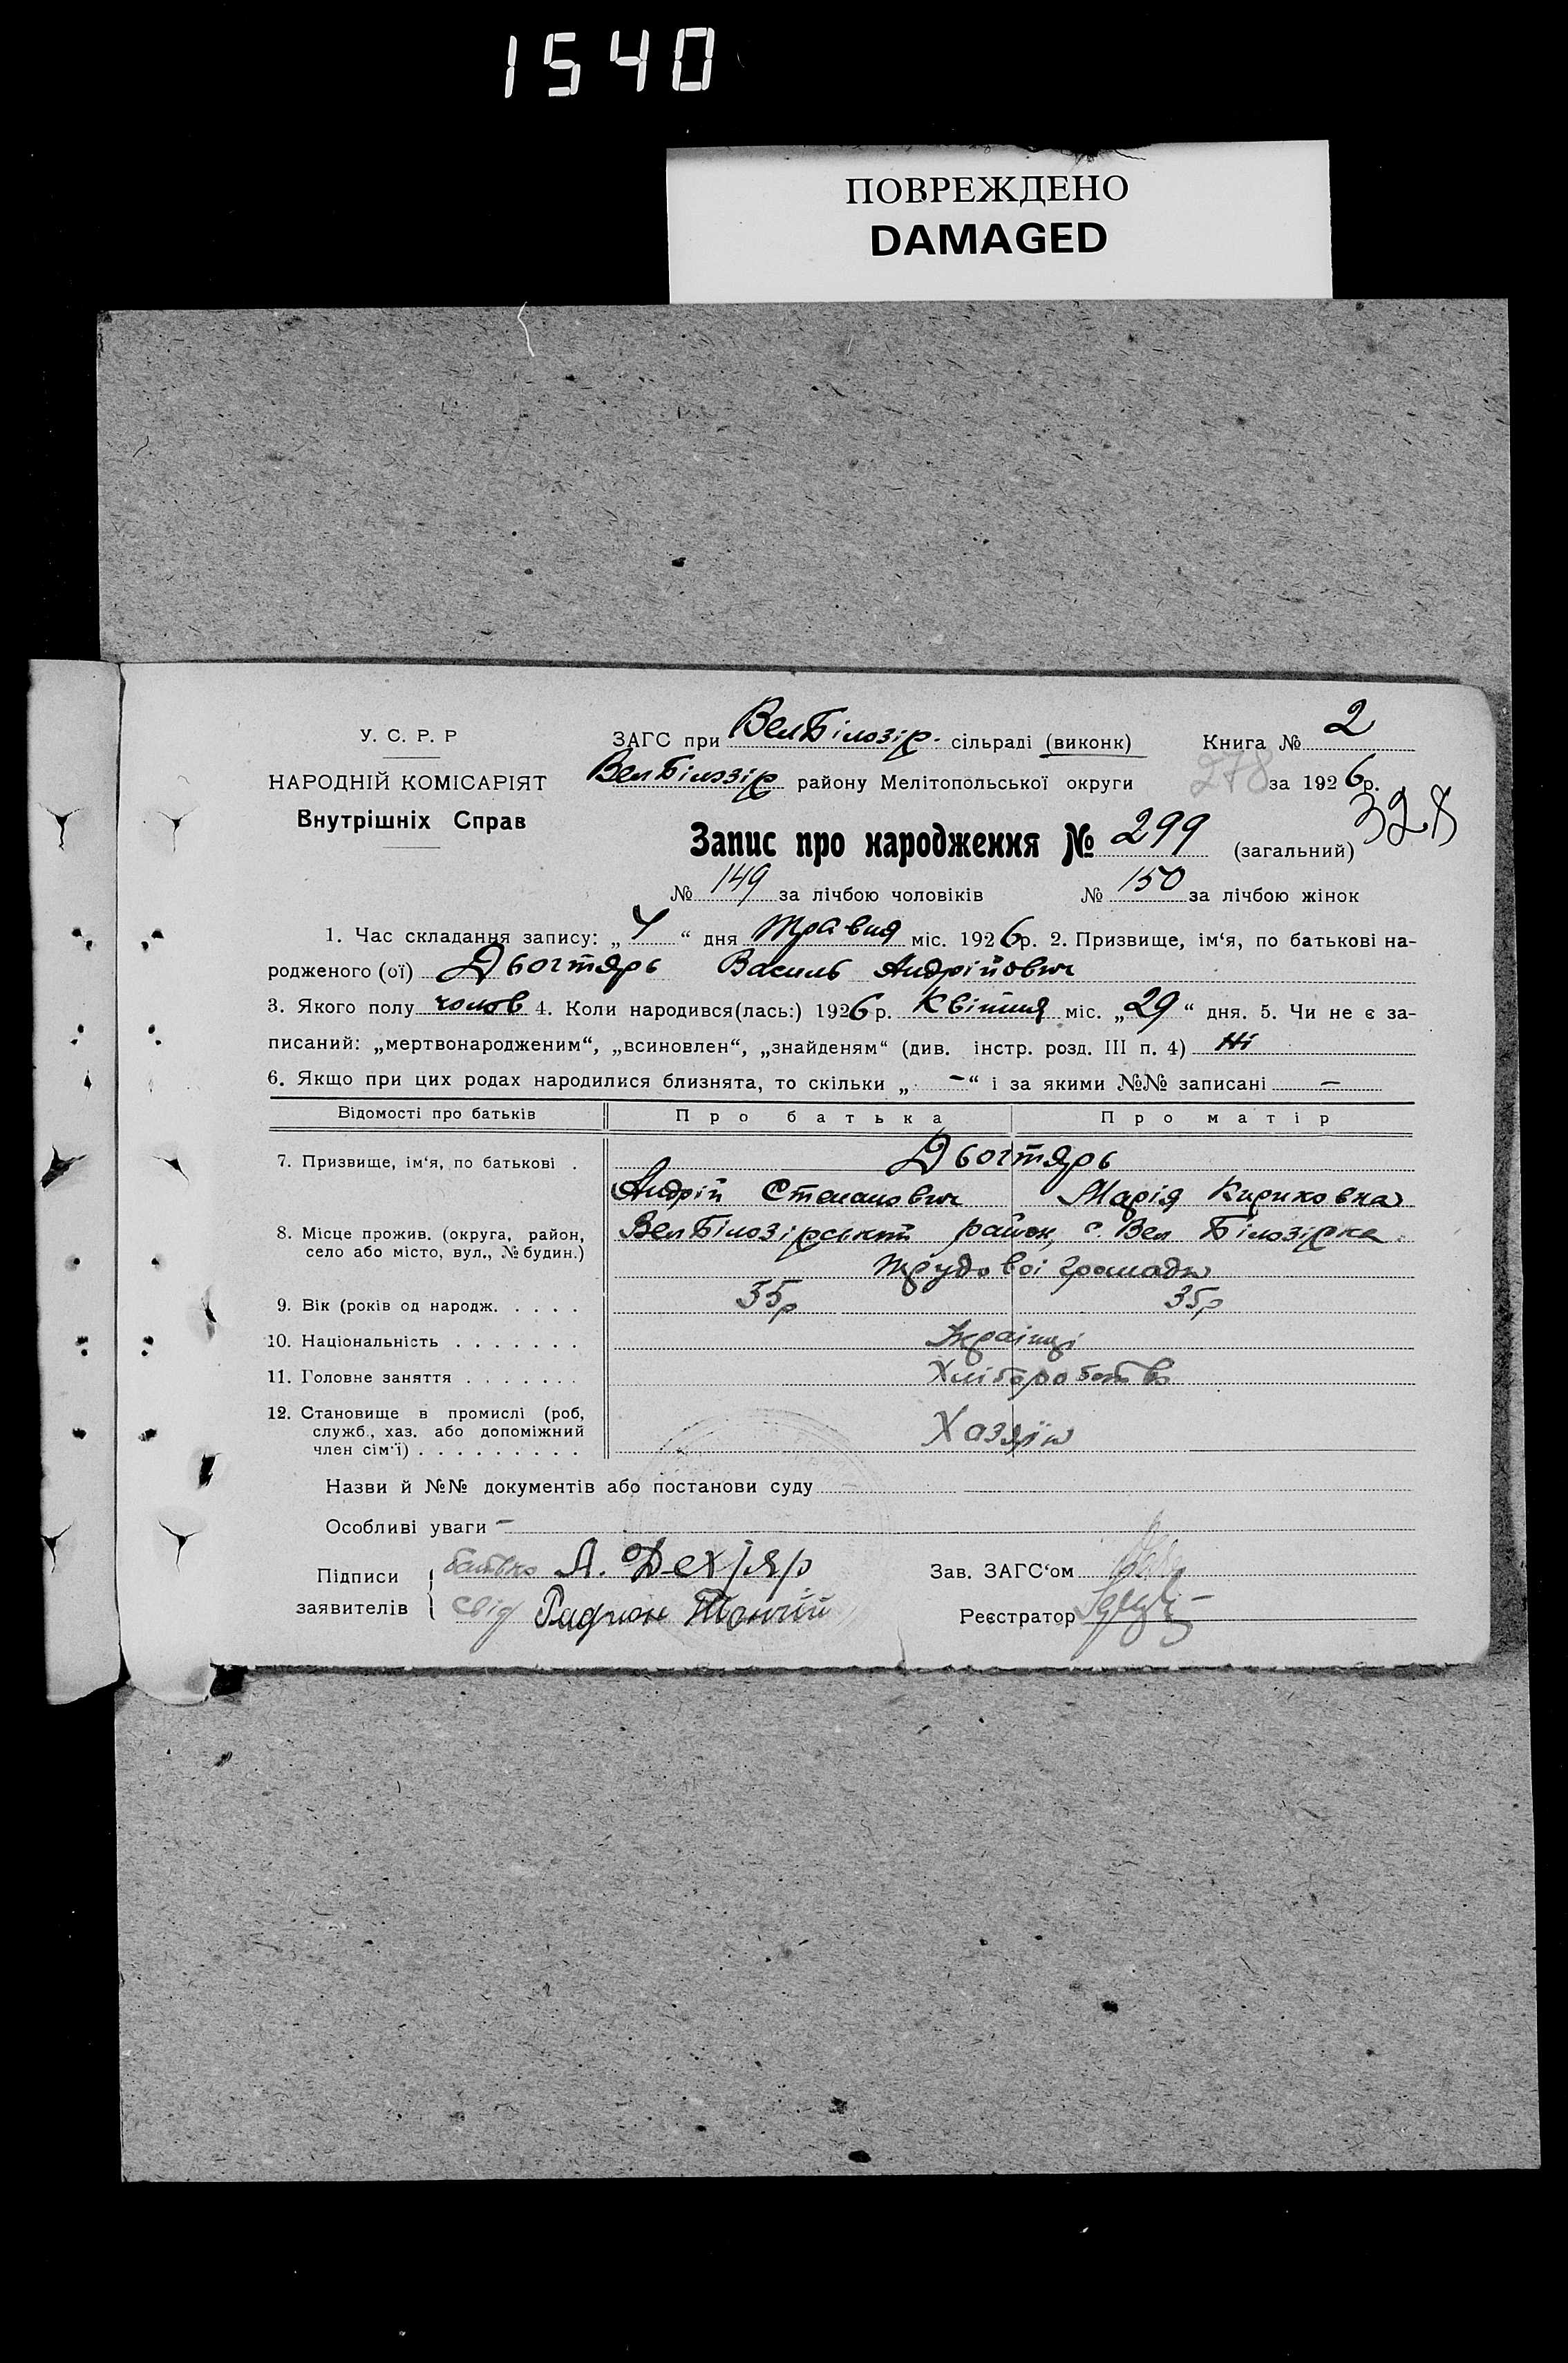 1540
ПОВРЕЖДЕНО
DAMAGED
У. С. Р. Р
НАРОДНІЙ КОМІСАРІЯТ
Внутрішніх Справ
ЗАГС при ВелБілозір. сільраді (виконк) Книга № 2
ВелБілозір району Мелітопольської округи 278 за 1926р.
328
Запис про народження № 299 (загальний)
№ 149 за лічбою чоловіків № 150 за лічбою жінок
1. Час складання запису: „4“ дня Травня міс. 1926р. 2. Призвище, ім‘я, по батькові на-
родженого (ої) Дьогтярь Василь Андрійович
3. Якого полу чолов 4. Коли народився(лась:) 1926р. Квітня міс. „29“ дня. 5. Чи не є за-
писаний: „мертвонародженим“, „всиновлен“, „знайденям“ (див. інстр. розд. III п. 4) Ні
6. Якщо при цих родах народилися близнята, то скільки „ — “ і за якими №№ записані —
Відомості про батьків Про батька Про матір
7. Призвище, ім‘я, по батькові . Дьогтярь
Андрій Степанович Марія Кириковна
8. Місце прожив. (округа, район, ВелБілозірський район, с. Вел Білозірка
село або місто, вул., № будин.)
Трудової Громади
9. Вік (років од народж. . . . . 35р 35р
10. Національність . . . . . . . Українці
11. Головне заняття . . . . . . . Хліборобство
12. Становище в промислі (роб,
служб., хаз. або допоміжний
член сім‘ї) . . . . . . . . . Хазяїн
Назви й №№ документів або постанови суду
Особливі уваги —
Підписи батько А. Дехтяр Зав. ЗАГС‘ом
заявителів свід Радион Реєстратор